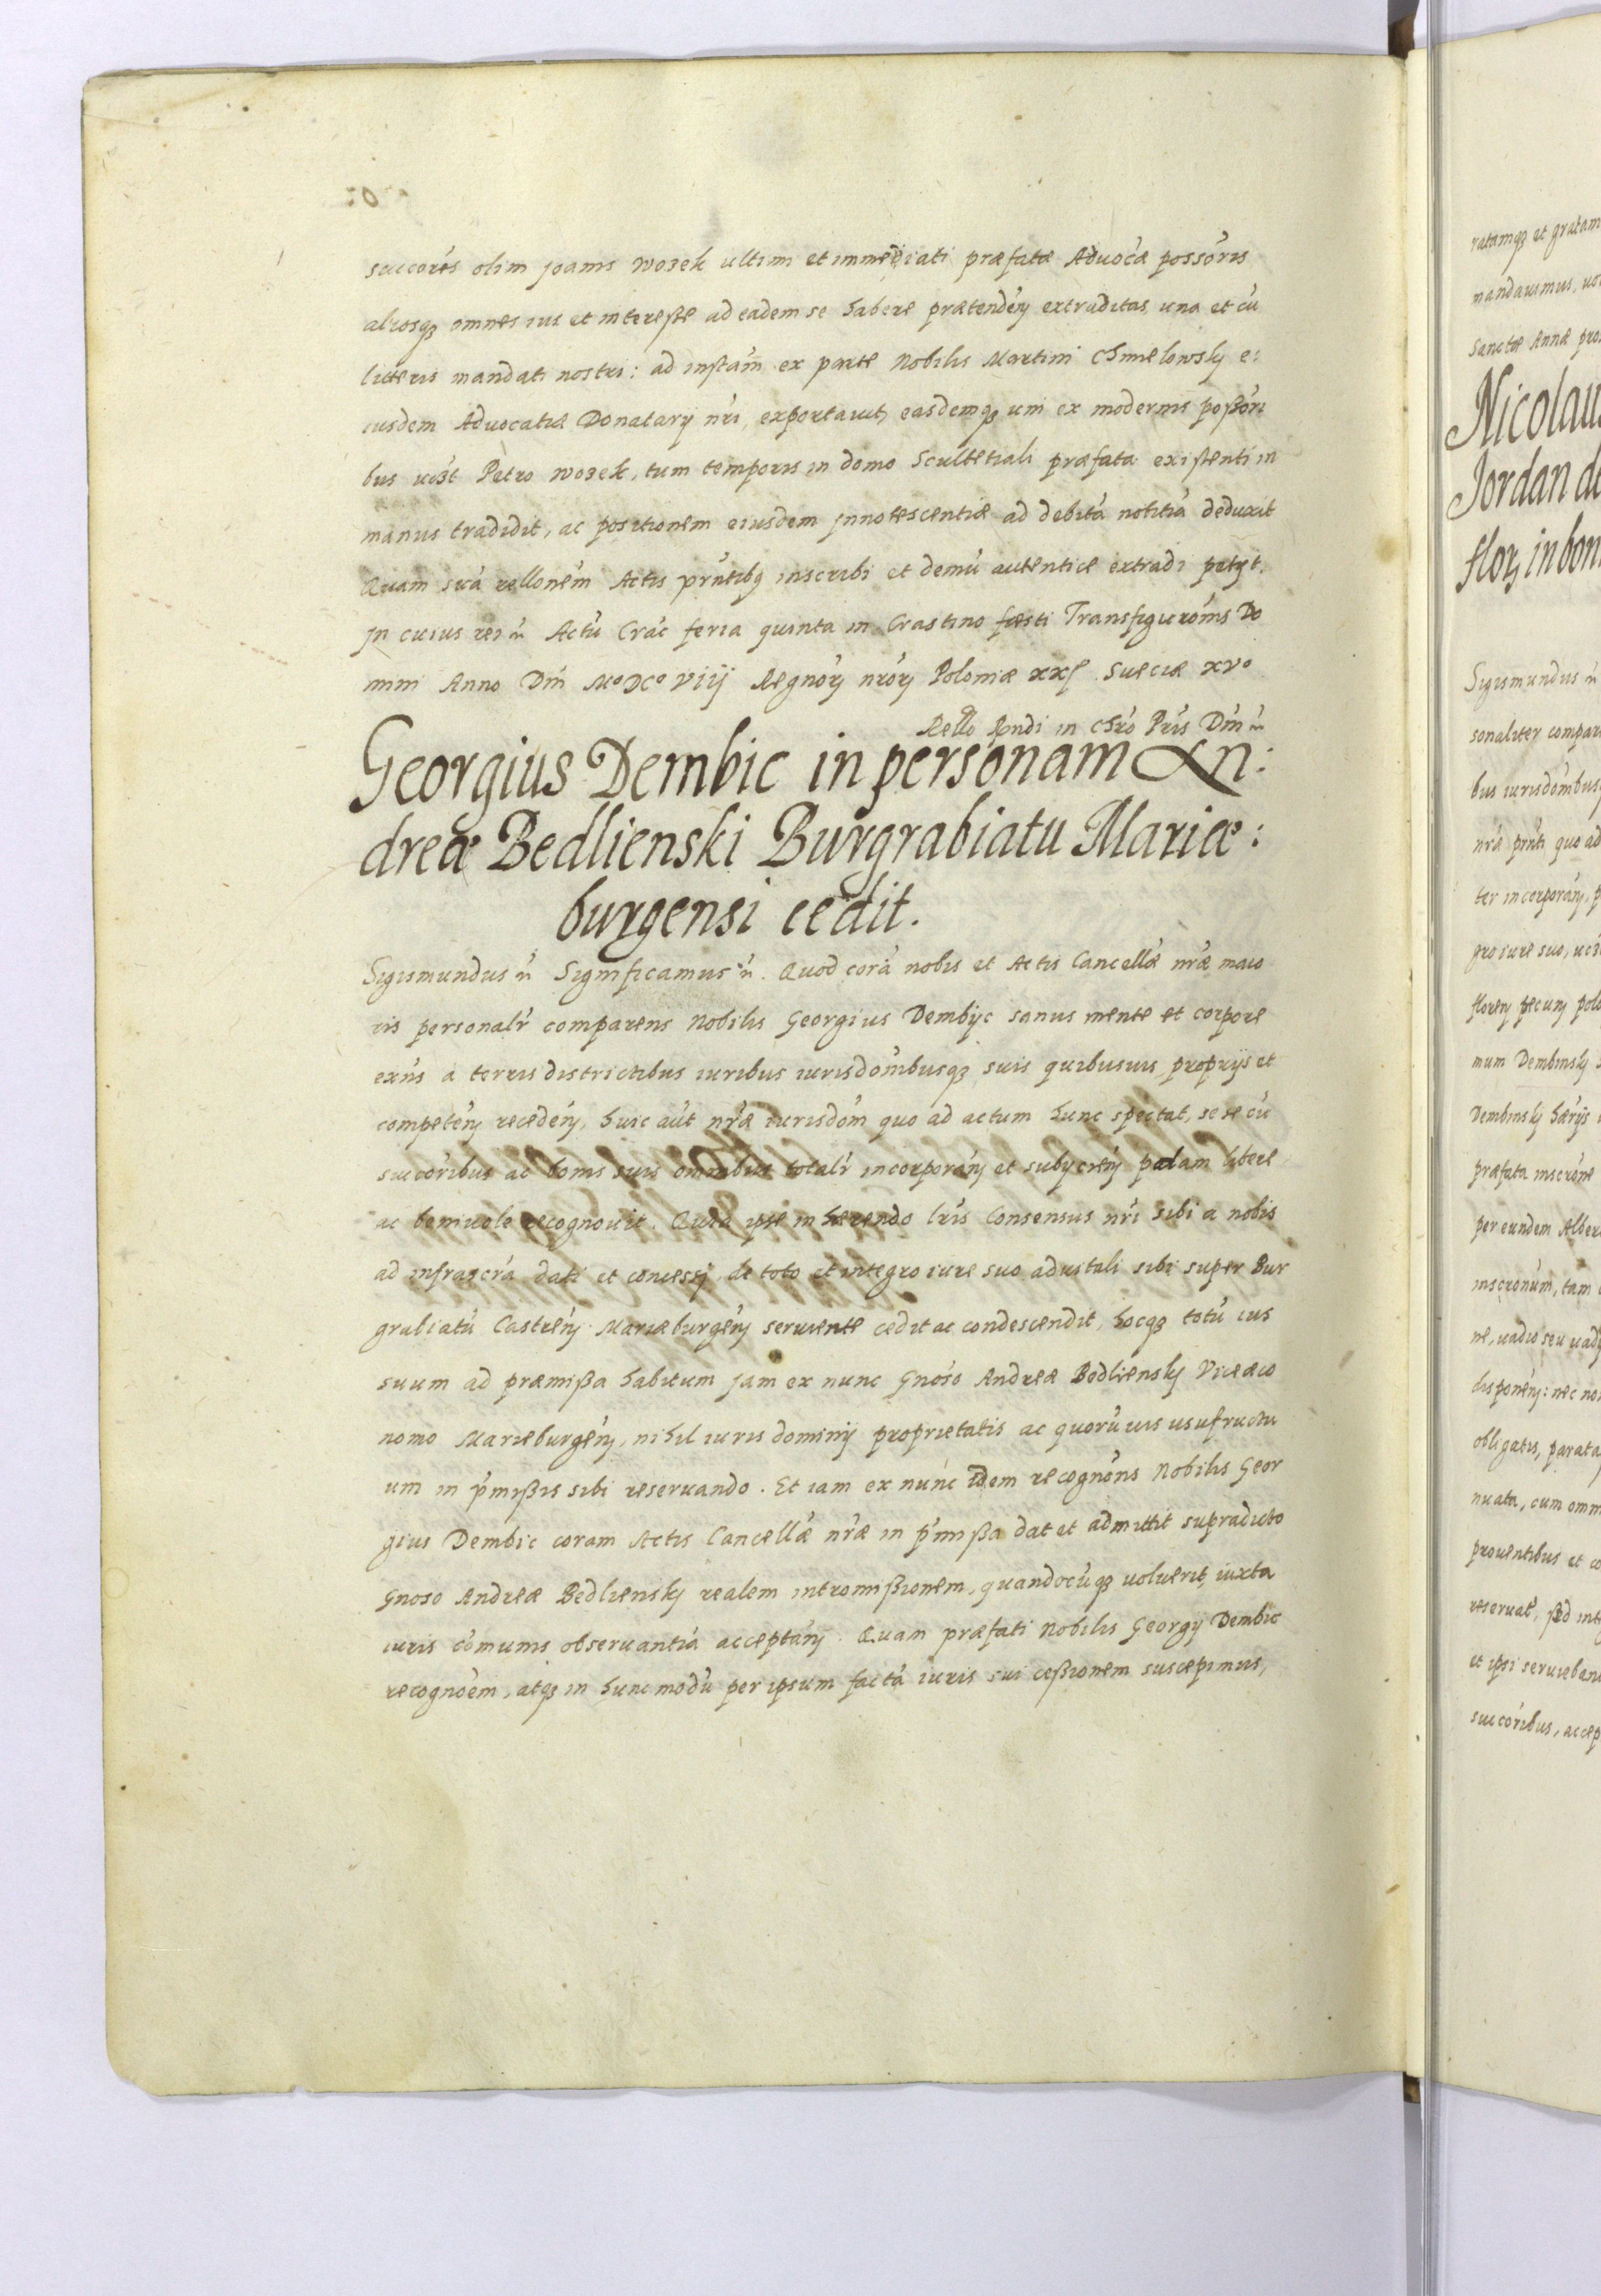 succorẽs olim Joanis Wozek ultimi et immediati præfatæ Advocãe possõris
aliosqȝ omnes ius et interesse ad eadem se habere prætendeñ extraditas una et cũ
litteris mandati nostri: ad instañ ex parte Nobilis Martini Chmelowskÿ e:
iusdem Advocatiæ Donatarÿ nr̃i, exportavit, easdemqȝ uni ex modernis possõri
bus vcȝt Petro Wozek, tum temporis in domo Scultetiali præfata existenti in
manus tradidit, ac positionem eiusdem Jnnotescentiæ ad debitã notitiã deduxit
Quam suã rellonẽm Actis prñtibꝗ inscribi et demũ autentice extradi petÿt.
Jn cuius rei ñ Actũ Crac̃ feria quinta in Crastino festi Transfigurõnis Do
mini Anno Dñi Mº DCº VIIÿ Regnorȝ nrõrȝ Poloniæ xxj Sueciæ xvº
Rello Rñdi in Chrõ Pr̃is Dñi ñ
Georgius Dembic in personam An:
dreæ Bedlienski Burgrabiatu Mariæ:
burgensi cedit.
Sigismundus ñ Significamus ñ. Quod corã nobis et Actis Cancellãe nr̃æ maio
ris personalr̃ comparens Nobilis Georgius Dembÿc sanus mente et corpore
exñs a terris districtibus iuribus iurisdõnibusqȝ suis quibusuis proprÿs et
competeñ recedeñ, huic aũt nr̃æ iurisdõni quo ad actum hunc spectat, se se cũ
succorĩbus ac bonis suis omnibus totalr̃ incorporañ et subÿcieñ palam libere
ac beniuole recognouit. Quia ipse inhærendo lr̃is Consensus nr̃i sibi a nobis
ad infrascrã dati et concessj, de toto et integro iure suo aduitali sibi super Bur
grabiatũ Castreñ Mariæburgeñ seruiente cedit ac condescendit, hocqȝ totũ ius
suum ad præmissa habitum jam ex nunc Gnõso Andreæ Bedlienskÿ Viceæco
nomo Marieburgeñ, nihil iuris dominÿ proprietatis ac quorũuis usufructu
um in p̃missis sibi reseruando. Et iam ex nunc idem recognõns Nobilis Geor
gius Dembic coram Actis Cancellãe nr̃æ in p̃missa dat et admittit supradicto
Gnoso Andreæ Bedlienskÿ realem intromissionem, quandocũqȝ uoluerit, iuxta
iuris cõmunis obseruantiã acceptañ. Quam præfati Nobilis Georgÿ Dembic
recognõem, atqȝ in hunc modũ per ipsum factã iuris sui cessionem suscepimus,
ratamqȝ et gratam
mandauimus,
Sanctæ Annæ
Nicolaus
Jordan de
flor, in bon
Sigismundus ñ
sonaliter compar
bus iurisdõnibus
nr̃a prñti quo ad
ter incorporañ,
gro iure suo,
floreñ pecuñ polo
mum Dembinskÿ
Dembinskÿ hærÿs
præfata inscrõne
per eundem Alber
inscronũm, tam
ne, uadio seu uadÿ
disponeñ: nec non
obligatis, parata
nuata, cum omn
prouentibus et
reseruat, sed int
et ipsi seruieban
succorĩbus, accep